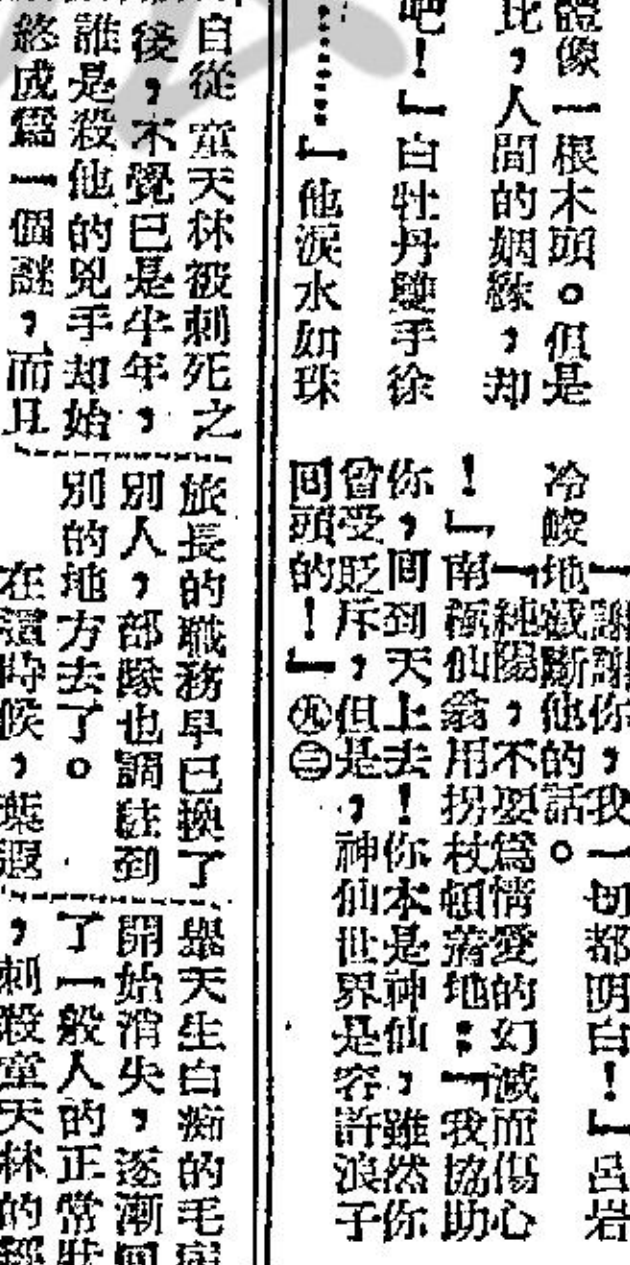 體像一根木頭。但是
此，人間的姻緣，却
吧！」白牡丹雙手徐
………」他淚水如珠
「謝謝你，我一切都明白！」呂岩
冷峻地截斷他的話。
「純陽，不要爲情愛的幻滅而傷心
！」南極仙翁用拐杖頓著地：「我協助
你，回到天上去！你本是神仙，雖然你
曾受貶斥，但是，神仙世界是容許浪子
回頭的！」㊈㊂
自從童天林被刺死之
後，不覺已是半年，
誰是殺他的兇手却始
終成爲一個謎，而且
旅長的職務早已換了
別人，部隊也調駐到
別的地方去了。
在這時候，葉遐
天生白痴的毛病
開始消失，逐漸回
了一般人的正常狀
，刺殺童天林的經